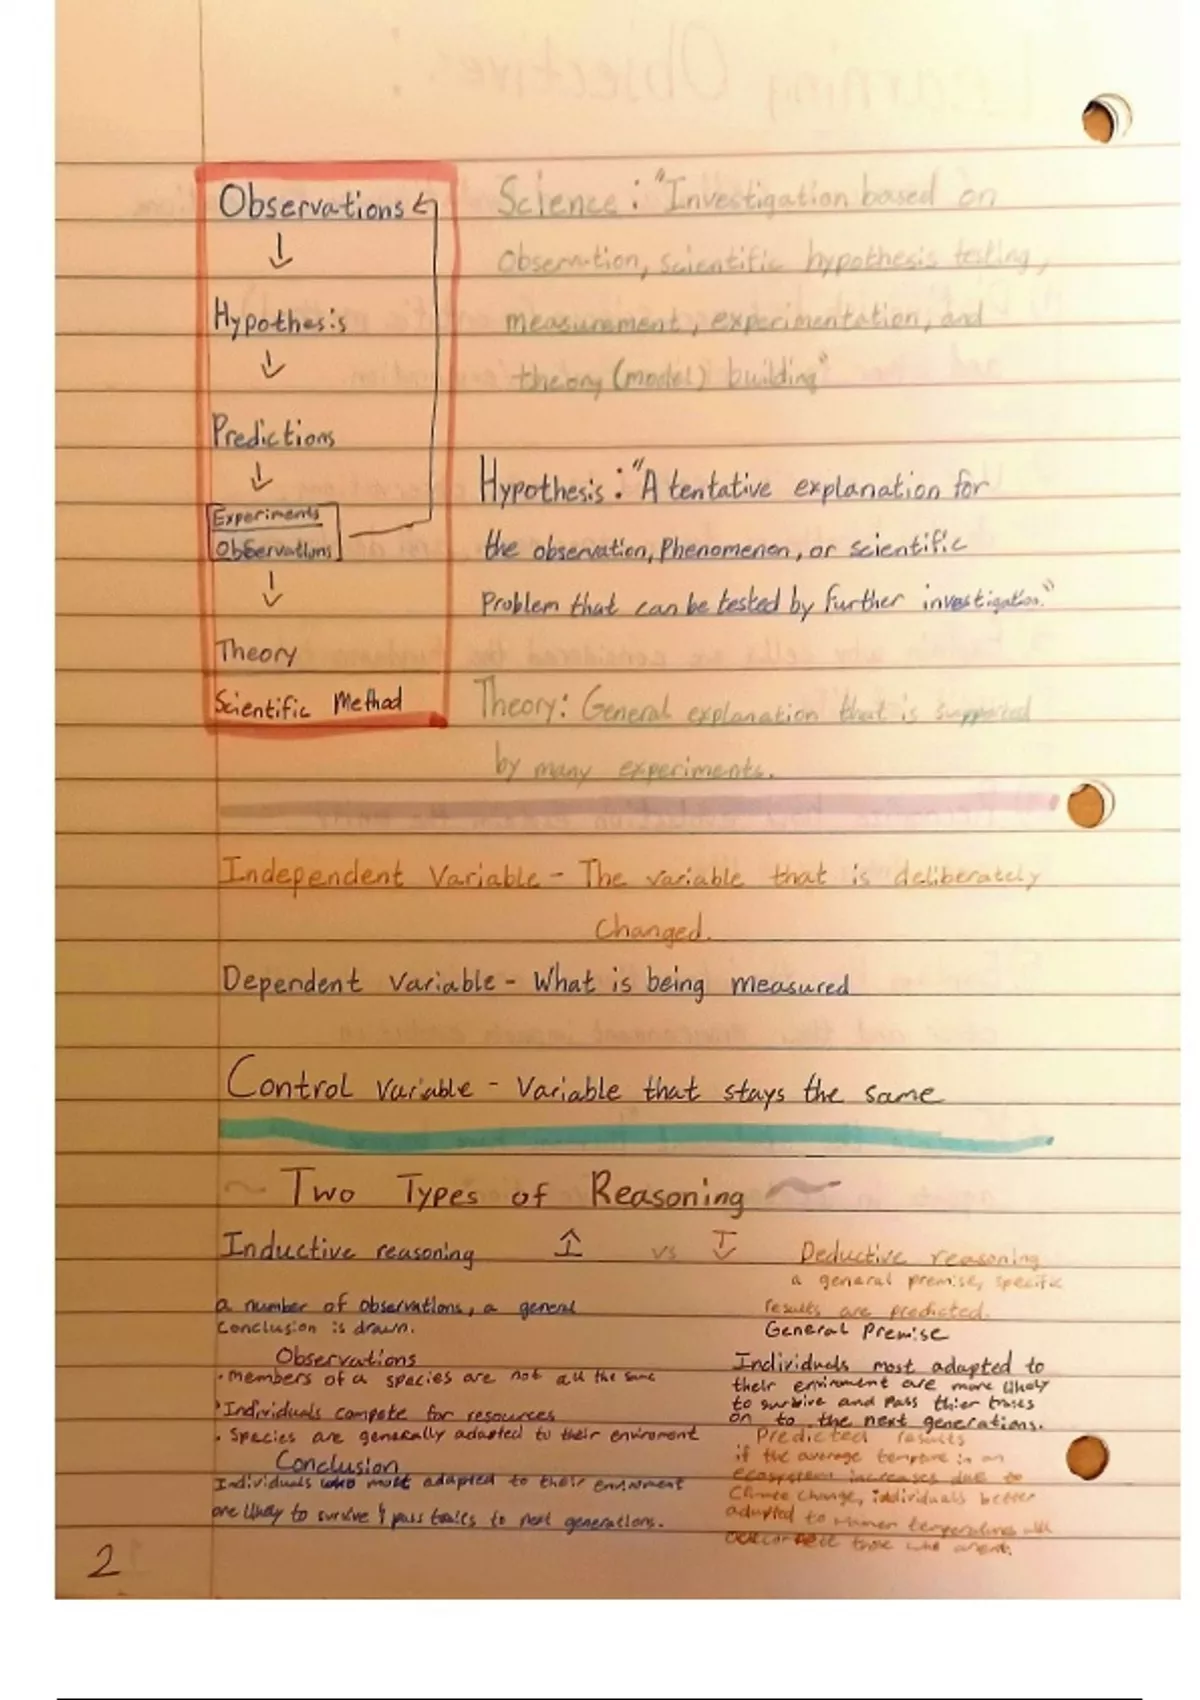 Observations
↓
Hypothesis
↓
Predictions
↓
Experiments
Observations
↓
Theory
Scientific Method
Science: "Investigation based on
observation, scientific hypothesis testing,
measurement, experimentation, and
theory (model) building"
Hypothesis: "A tentative explanation for
the observation, Phenomenon, or scientific
Problem that can be tested by further investigation."
Theory: General explanation that is supported
by many experiments.
Independent Variable - The variable that is deliberately
Changed.
Dependent variable - What is being measured
Control variable - Variable that stays the same
~ Two Types of Reasoning ~
Inductive reasoning ↑ vs ↓ Deductive reasoning
a number of observations, a general
conclusion is drawn.
Observations
• members of a species are not all the same
• Individuals compete for resources
• Species are generally adapted to their enviroment
Conclusion
Individuals who most adapted to their enviroment
are likely to survive & pass traits to next generations.
a general premise, specific
results are predicted.
General Premise
Individuals most adapted to
their enviroment are more likely
to survive and Pass thier traits
on to the next generations.
Predicted results
if the average in an
ecosystem increases due to
Climate Change, individuals better
adapted to temperatures will
those who arent.
2